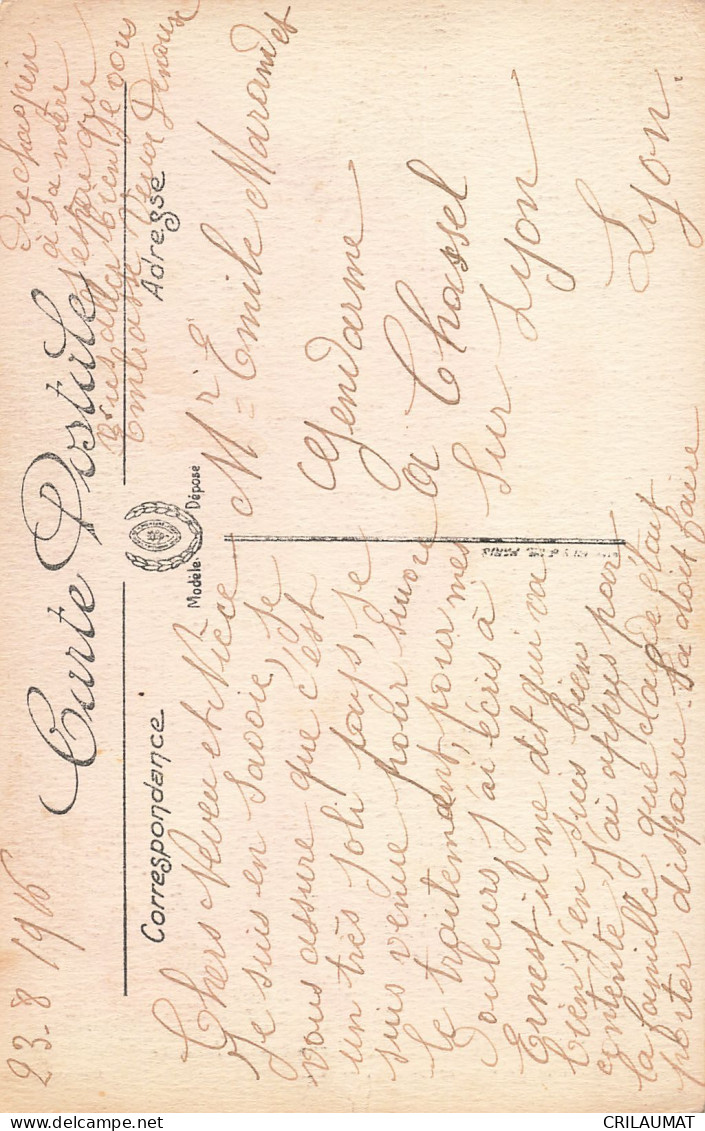 23-8 1916
Carte Postale
Correspondance
Chers Neveu et Nièce
Je suis en Savoie, Je
vous assure que c'est
un très joli pays, je
suis venue pour suivre
le traitement pour mes
Douleurs, j'ai écris à
Ernest il me dit qui va
bien j'en suis bien
contente J'ai appris par
la famille que claude était
porter disparu. Sa doit faire
du chagrin
à sa mère
J'espère que
bientôt je vous
Embrasse
Modèle Déposé
PARIS
Adresse
Mr Emile Marandet
Gendarme
à Chassel
Sur Lyon
Lyon.
CRILAUMAT